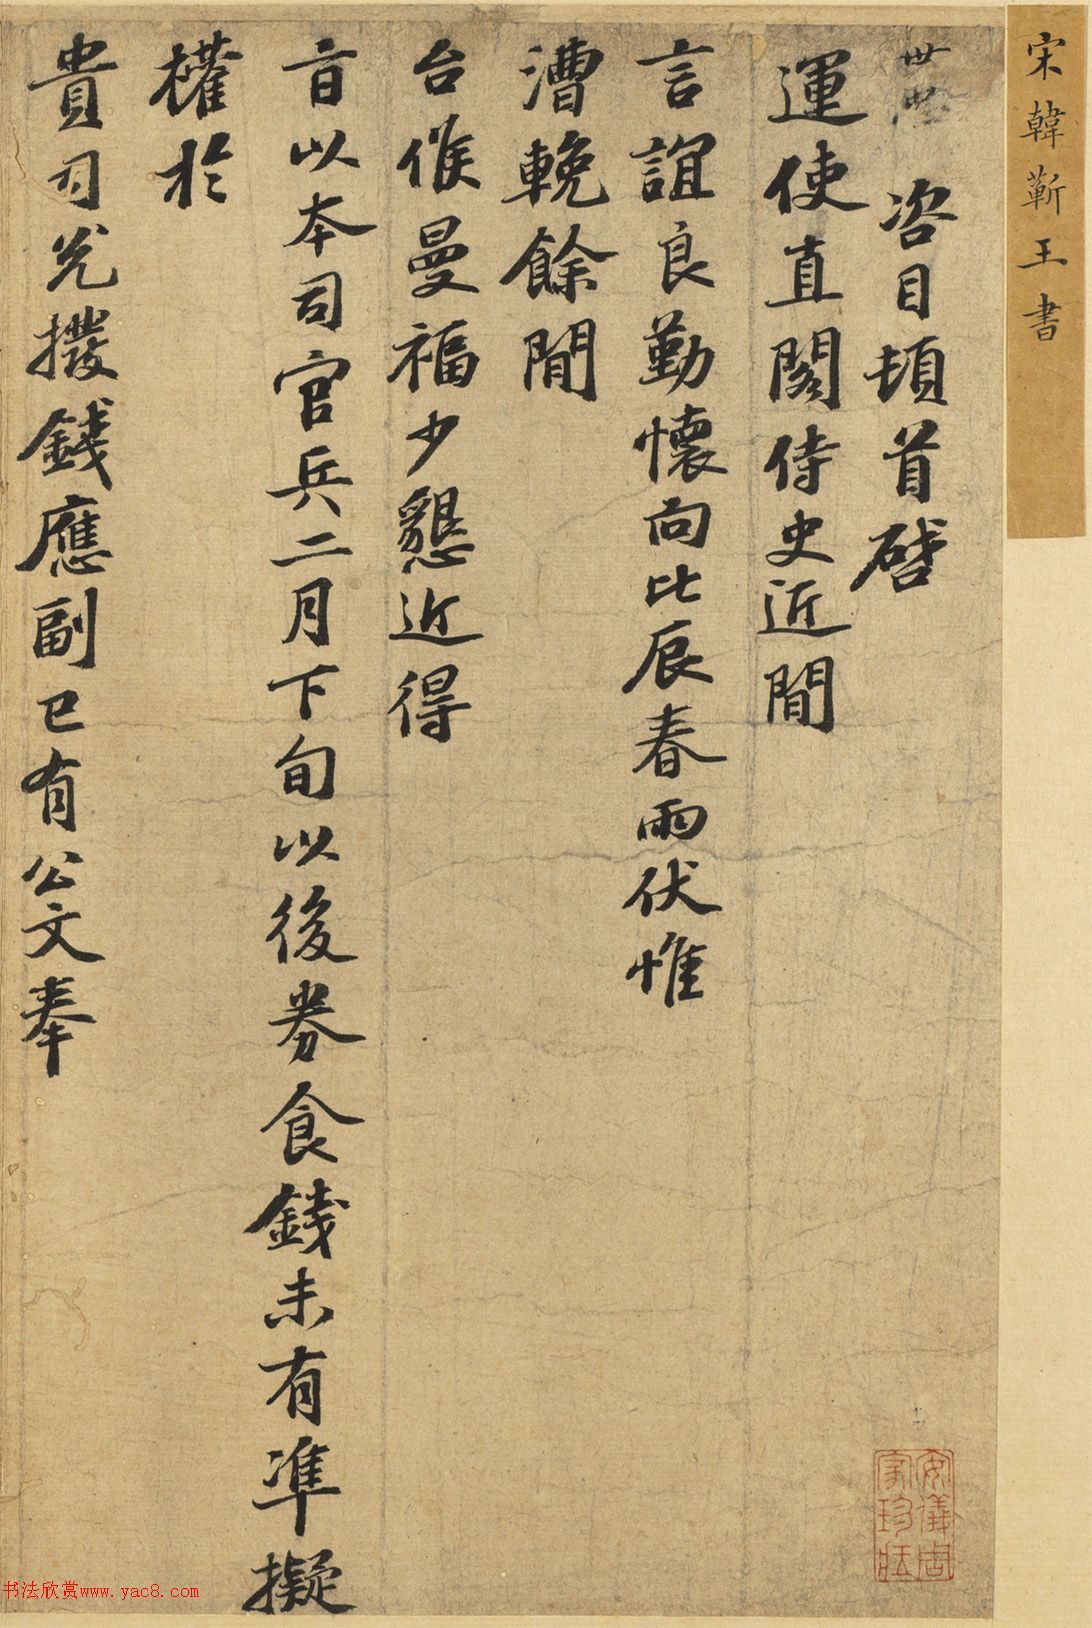 宋韓蘄王書
世世 咨目頓首啓
運使直閣侍史近間
言誼良勤懷向比辰春雨伏惟
漕輓餘間
台候曼福少懇近得
旨以本司官兵二月下旬以後券食錢未有準擬
權於
貴司兌撥錢應副已有公文奉
安儀周家珍藏
书法欣赏www.yac8.com